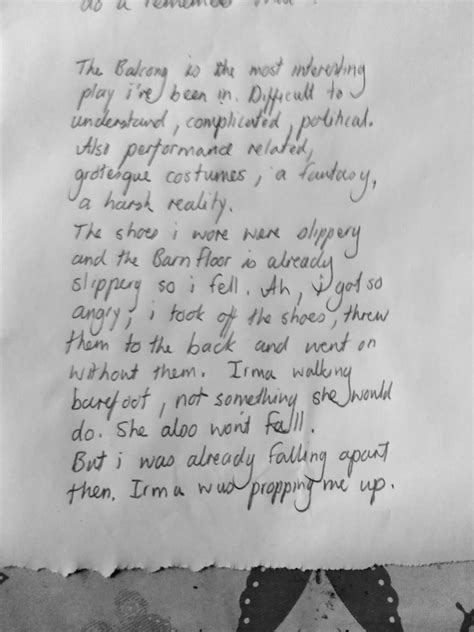 do a remember
The Balcony is the most interesting
play i've been in. Difficult to
understand, complicated, political.
Also performance related,
grotesque costumes, a fantasy,
a harsh reality.
The shoes i wore were slippery
and the Barn Floor is already
slippery so i fell. Ah, i got so
angry, i took off the shoes, threw
them to the back and went on
without them. Irma walking
barefoot, not something she would
do. She also won't fall.
But i was already falling apart
then. Irma was propping me up.